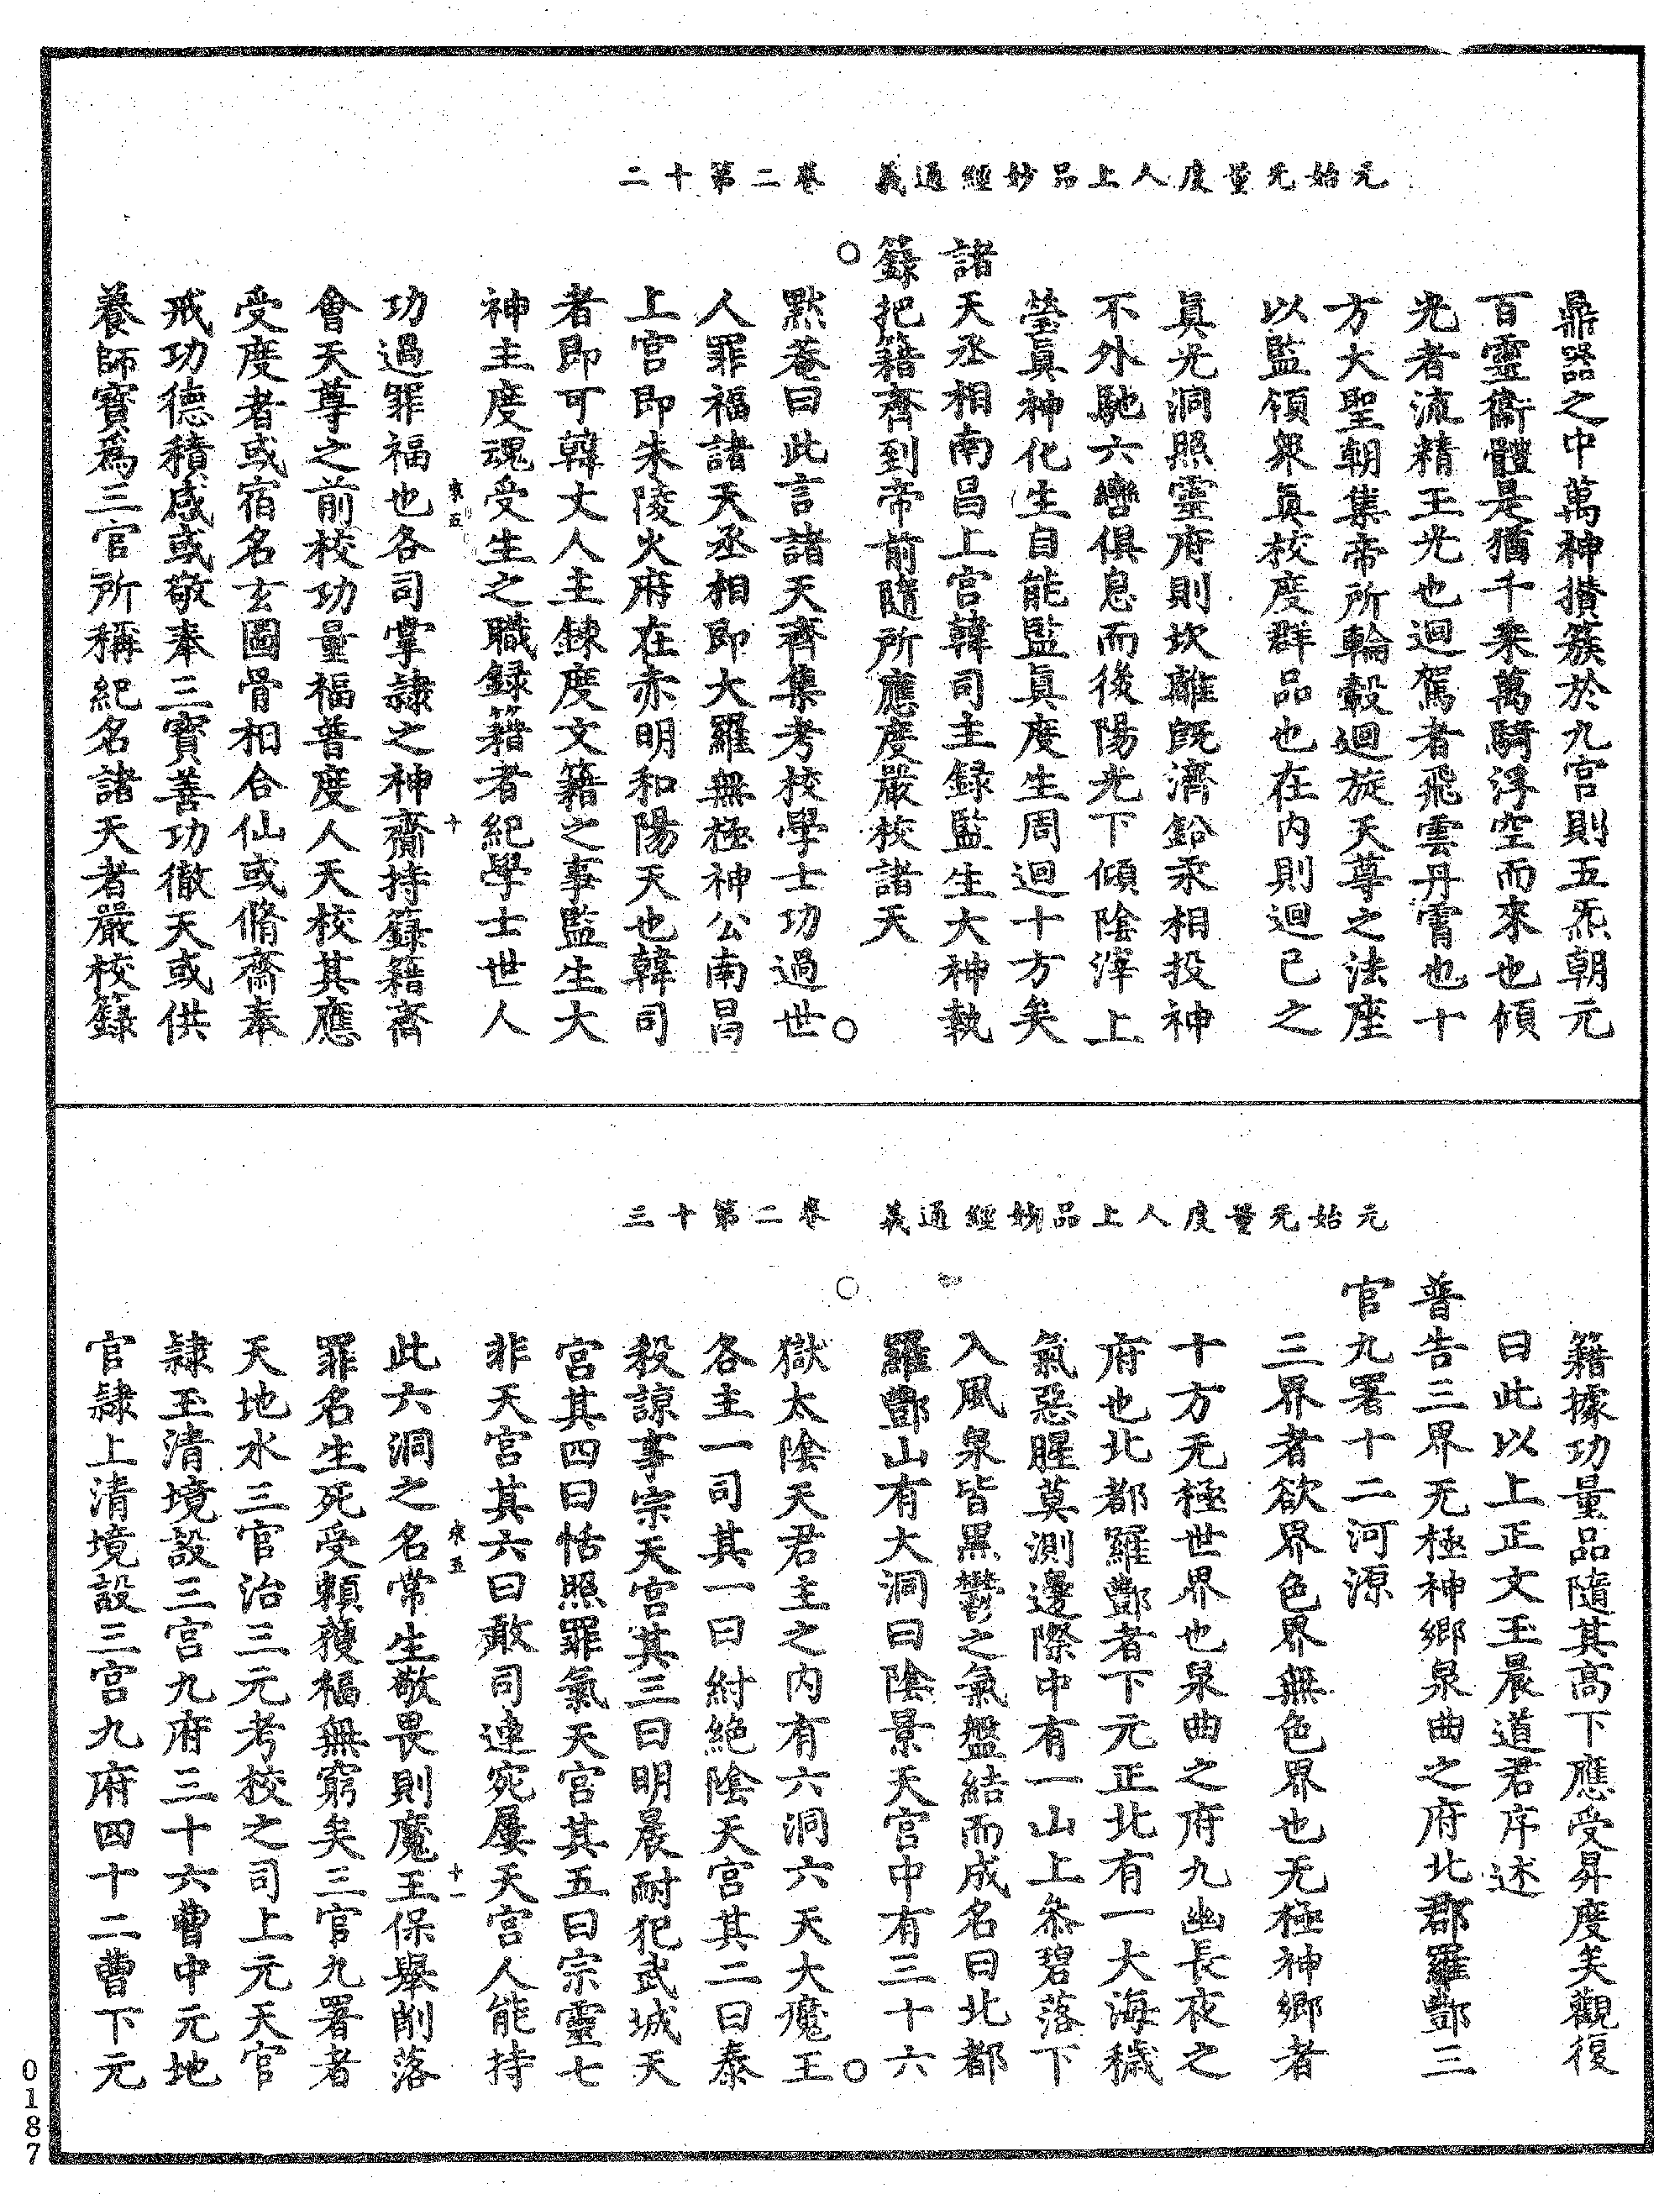 元始无量度人上品妙經通義　卷二第十二
鼎器之中萬神攢簇於九宮則五炁朝元
百靈衞體是猶千乘萬騎浮空而來也傾
光者流精玉光也迴駕者飛雲丹霄也十
方大聖朝集帝所輪轂迴旋天尊之法座
以監領衆真校度群品也在內則迴己之
真光洞照靈府則坎離既濟鉛汞相投神
不外馳六轡俱息而後陽光下傾陰滓上
瑩真神化生自能監真度生周迴十方矣
諸天丞相南昌上宮韓司主録監生大神執
籙把籍齊到帝前隨所應度嚴校諸天
點菴曰此言諸天齊集考校學士功過世
人罪福諸天丞相即大羅無極神公南昌
上官即朱陵火府在赤明和陽天也韓司
者即可韓丈人主錬度文籍之事監生大
神主度魂受生之職録籍者紀學士世人
功過罪福也各司掌隷之神齎持籙籍齊
會天尊之前校功量福普度人天校其應
受度者或宿名玄圖骨相合仙或脩齋奉
戒功德積感或敬奉三寶善功徹天或供
養師寶爲三官所稱紀名諸天者嚴校籙
元始无量度人上品妙經通義　卷二第十三
籍據功量品隨其高下應受昇度矣觀復
曰此以上正文玉晨道君序述
普告三界无極神鄉泉曲之府北都羅酆三
官九署十二河源
三界者欲界色界無色界也无極神鄉者
十方无極世界也泉曲之府九幽長夜之
府也北都羅酆者下元正北有一大海穢
氣惡腥莫測邊際中有一山上叅碧落下
入風泉皆黑鬱之氣盤結而成名曰北都
羅酆山有大洞曰陰景天宮中有三十六
獄太陰天君主之内有六洞六天大魔王
各主一司其一曰紂絶陰天宮其二曰泰
殺諒事宗天宮其三曰明晨耐犯武城天
宮其四曰恬照罪氣天宮其五曰宗靈七
非天宮其六曰敢司連宛屢天宮人能持
此六洞之名常生敬畏則魔王保舉削落
罪名生死受頼獲福無窮矣三官九署者
天地水三官治三元考校之司上元天官
隷玉清境設三宮九府三十六曹中元地
官隷上清境設三宮九府四十二曹下元
0187